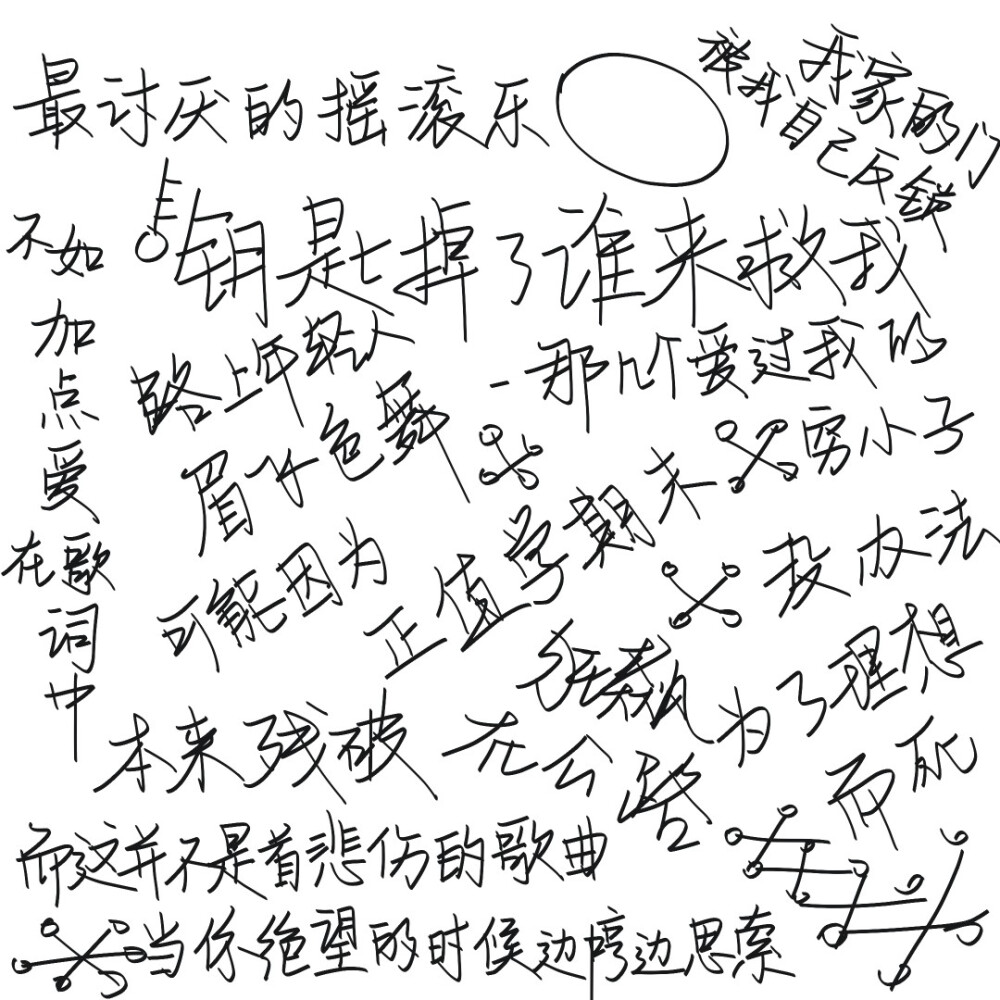 最讨厌的摇滚乐
我家的门
祥我自己反锁
不如加点爱在歌词中
钥是匕掉了谁来救我
路上年轻人
眉飞色舞
那几个爱过我的
穷小子
可能因为
正值学期末
没办法
狂飙
为了理想
本来残破
在公路
而饥
而这并不是首悲伤的歌曲
当你绝望的时候边哼边思索